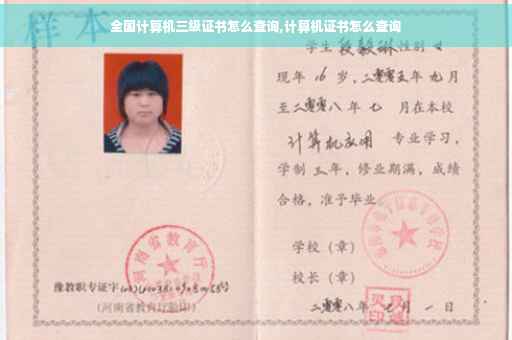 全国计算机三级证书怎么查询,计算机证书怎么查询
样本
学生 性别 女
现年 16 岁，二零零五年 九 月
至二零零八 年 七 月在本校
计算机应用 专业学习，
学制 三 年，修业期满，成绩
合格，准予毕业
学校（章）
校长（章）
二零零八年 七 月 一 日
河南省教育厅
豫教职专证字
（河南省教育厅验印）